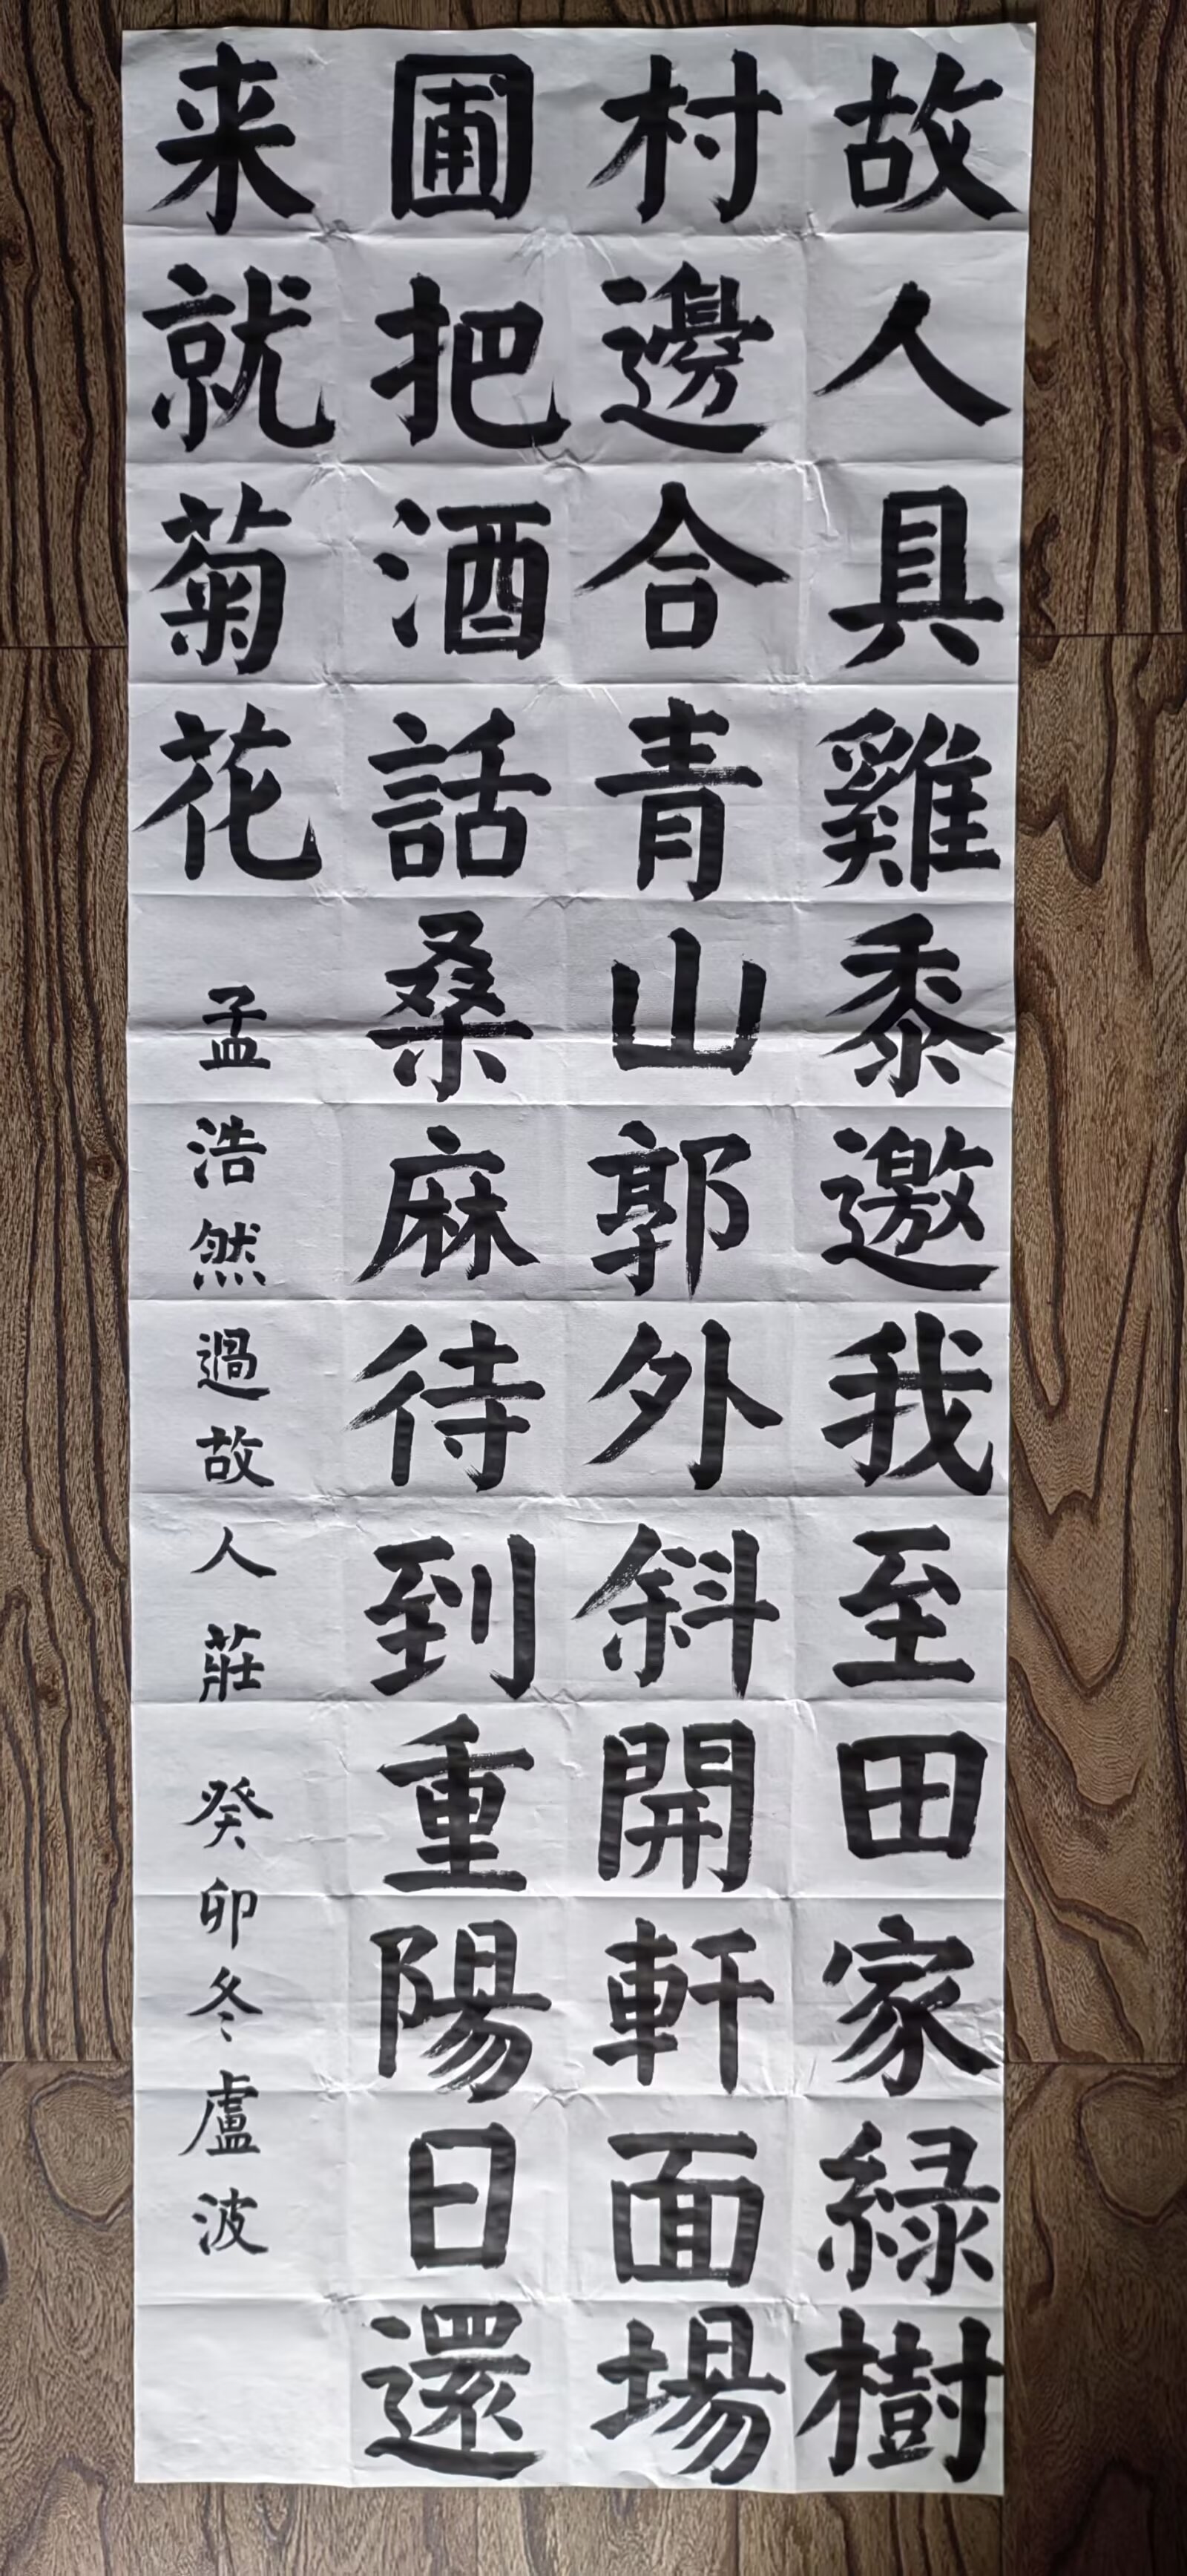 故人具雞黍邀我至田家緑樹
村邊合青山郭外斜開軒面場
圃把酒話桑麻待到重陽日還
来就菊花
孟浩然過故人莊 癸卯冬盧波